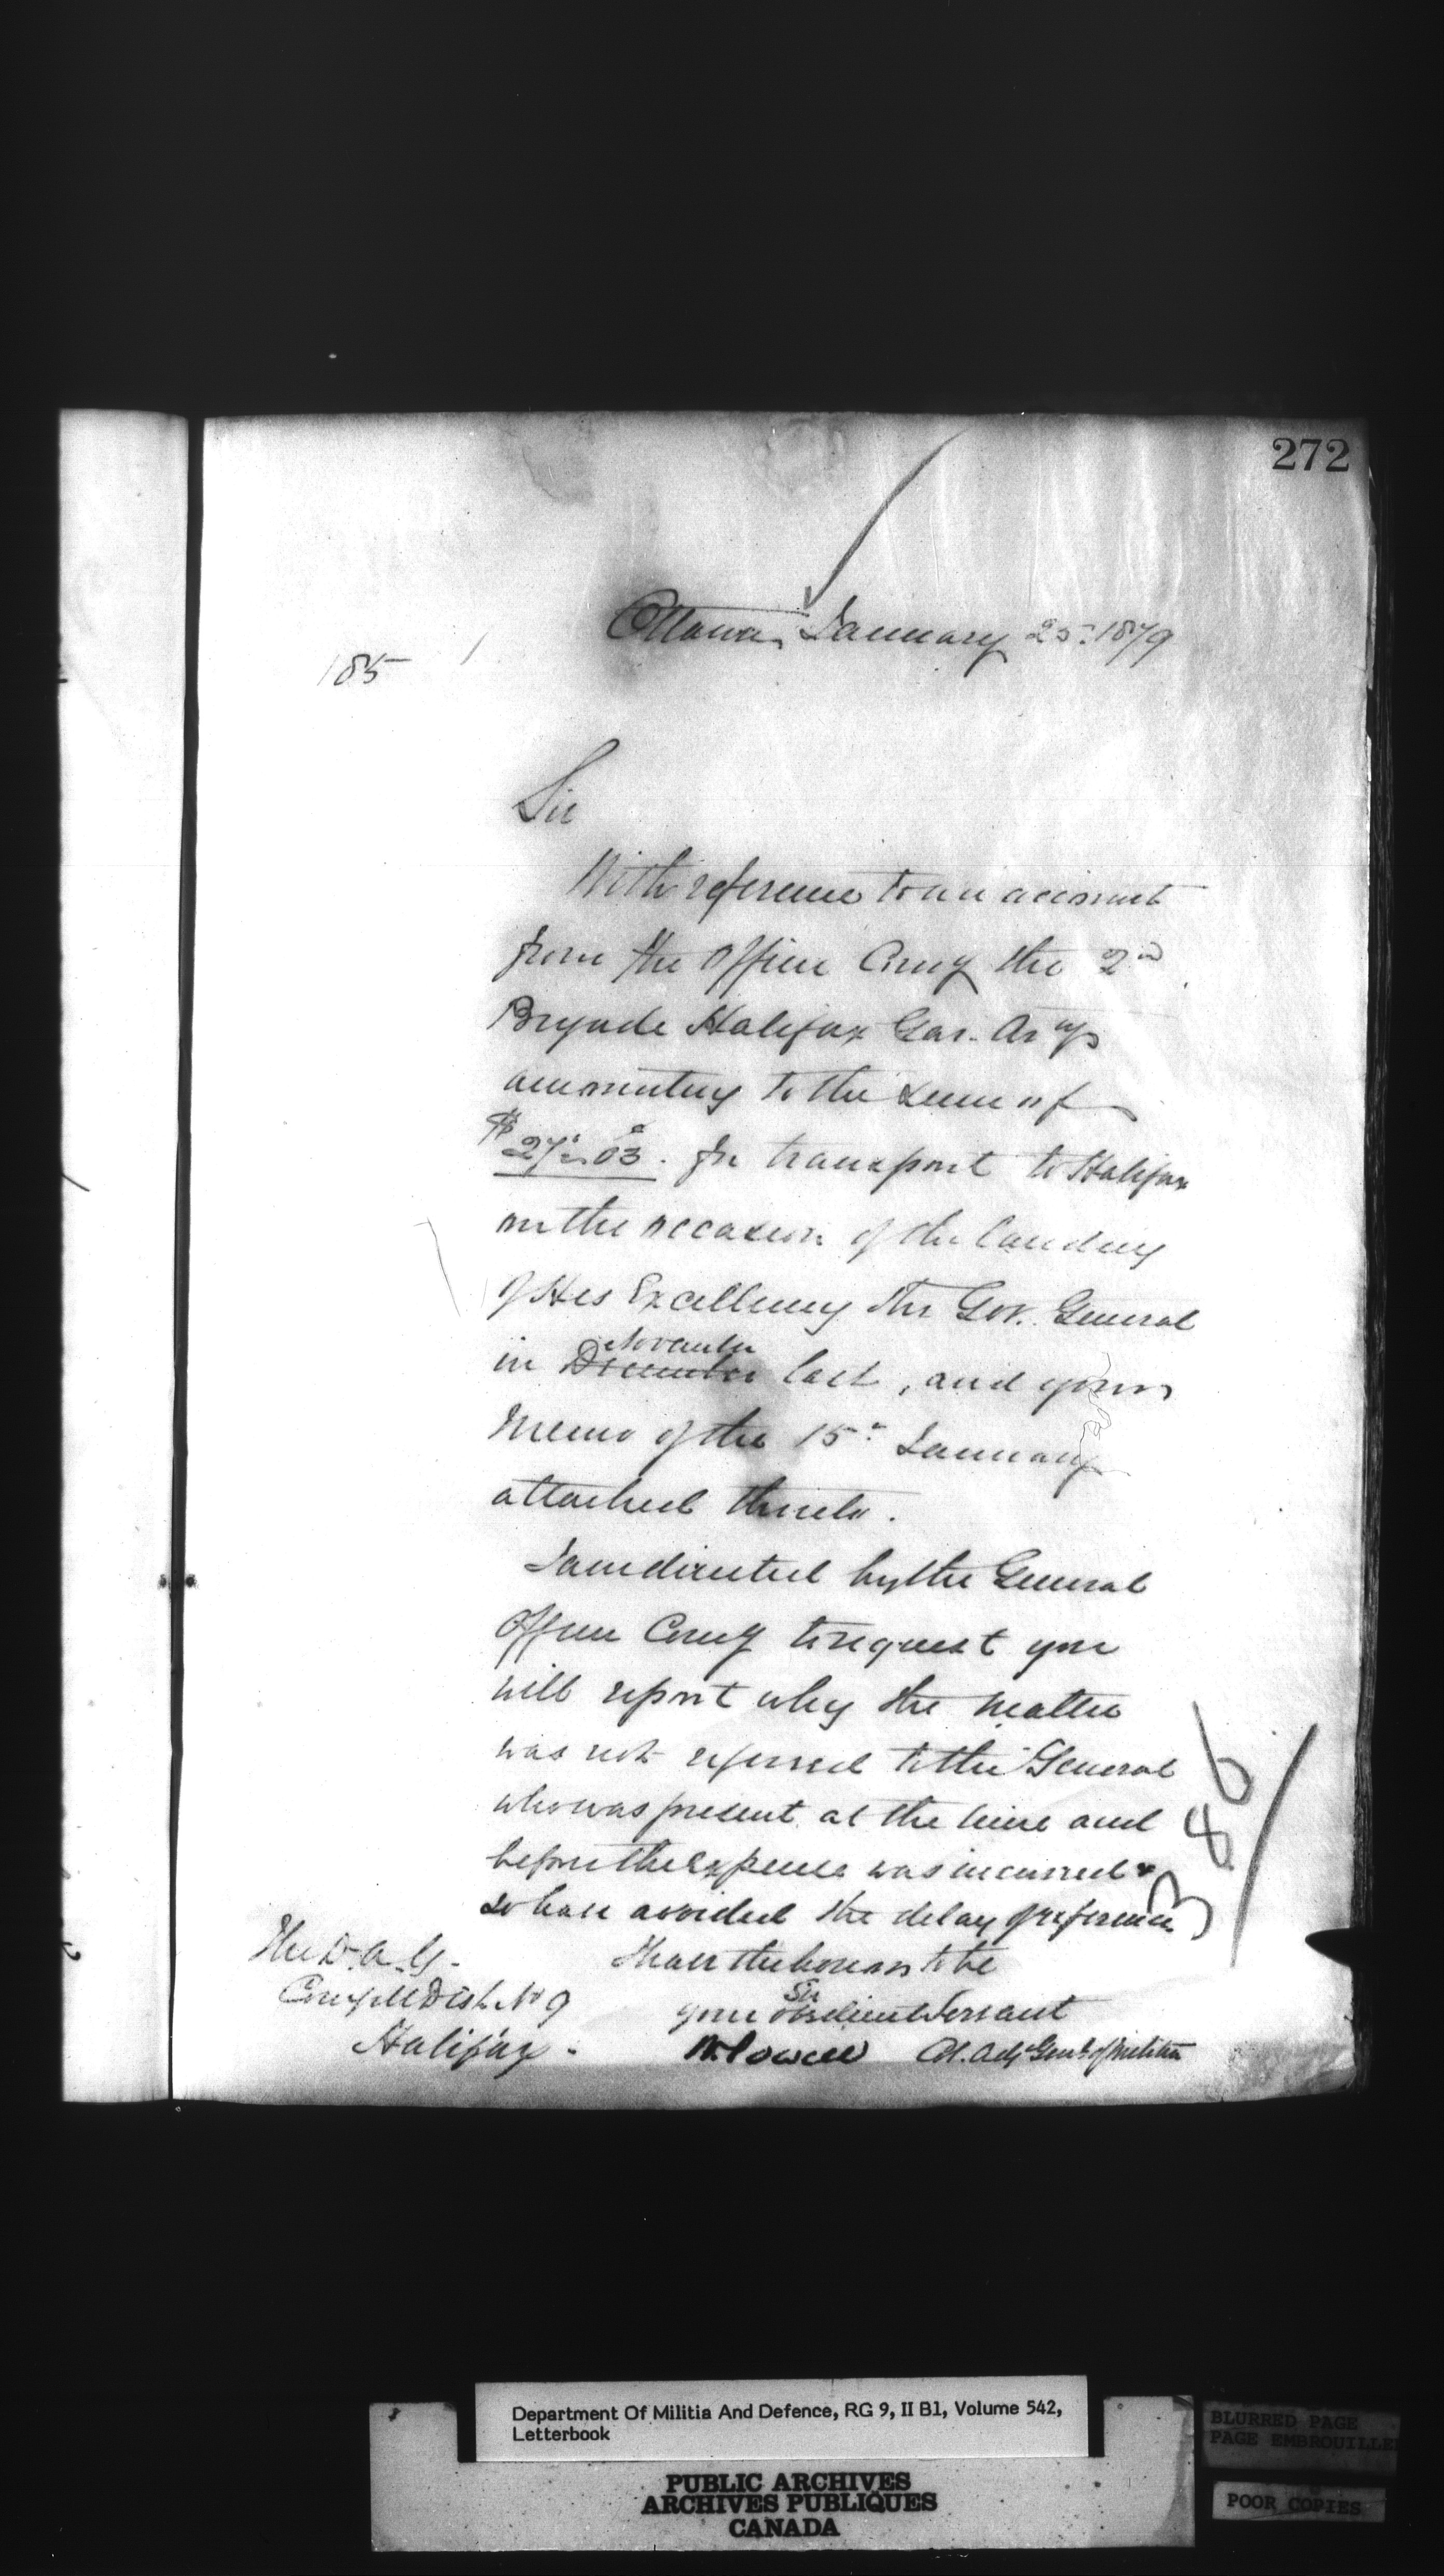 272
Ottawa, January 25. 1879
185
Sir
With reference to an account
from the Officer Comg the 2nd
Brigade Halifax Gar. Arty
amounting to the sum of
$27.03. for transport to Halifax
on the occasion of the landing
of His Excellency the Gov. General
November
in December last, and your
Memo of the 15th January
attached thereto.
I am directed by the General
Officer Comg to request you
will report why the matter
was not referred to the General
who was present at the time and
before the expense was incurred &
so have avoided the delay of reference
386
I have the honor to be
Sir
your obedient Servant
W Powell Col. Adjt Genl. of Militia
The D.A.G.
Comg M Dist. No 9
Halifax.
Department Of Militia And Defence, RG 9, II B1, Volume 542,
Letterbook
PUBLIC ARCHIVES
ARCHIVES PUBLIQUES
CANADA
BLURRED PAGE
PAGE EMBROUILLEE
POOR COPIES